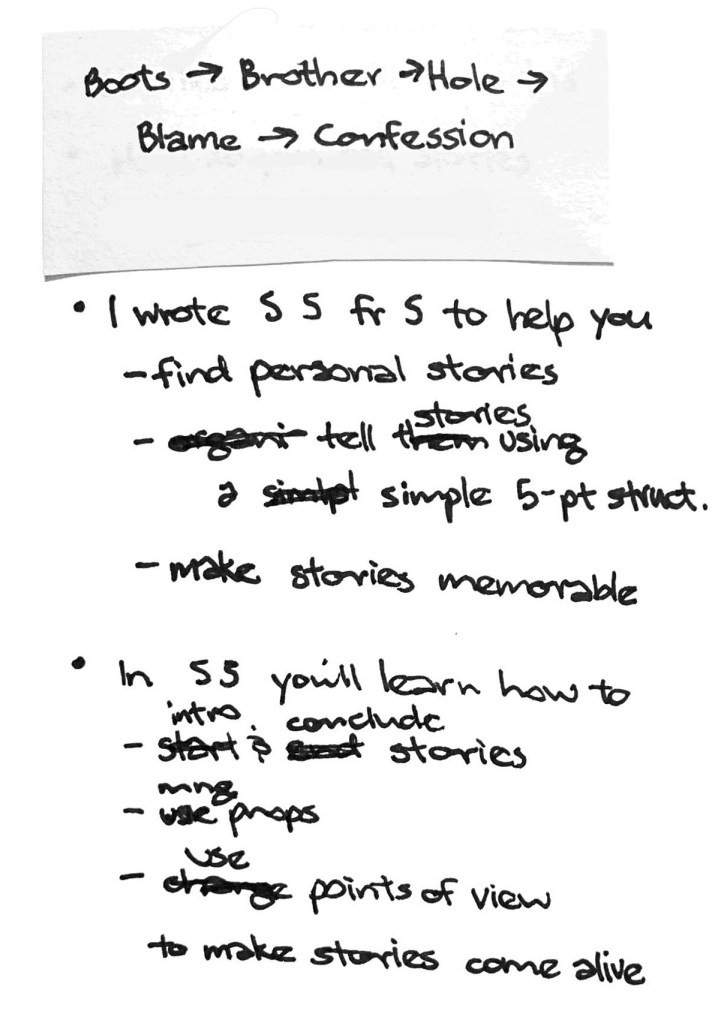 Boots → Brother → Hole →
Blame → Confession
• I wrote S S fr S to help you
- find personal stories
stories
- organi tell them using
a simlpt simple 5-pt struct.
- make stories memorable
• In SS you'll learn how to
intro conclude
- start & end stories
mng
- use props
use
- change points of view
to make stories come alive